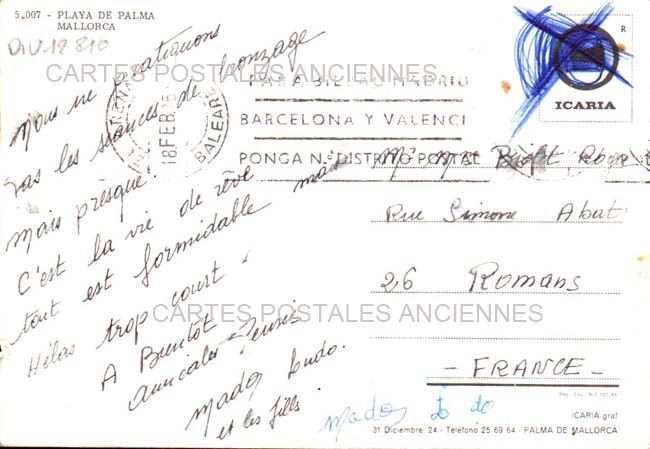 5.007 - PLAYA DE PALMA
MALLORCA
DIV-12 810
Nous ne pratiquons
pas les séances de bronzage
mais presque
C'est la vie de rêve
tout est formidable mais
Hélas trop court !
A Bientôt
amicales Pensées
Mados Ludo.
et les filles.
CARTES POSTALES ANCIENNES
18 FEB
BALEARE
PARA BILBAO MADRID
BARCELONA Y VALENCI
PONGA N.º DISTRITO POSTAL
R
ICARIA
Mr Mme
Rue Simone Abat
26 Romans
CARTES POSTALES ANCIENNES
- FRANCE -
Mados
ICARIA graf
31 Diciembre, 24 - Teléfono 25 69 64 - PALMA DE MALLORCA